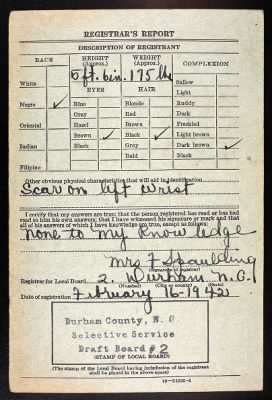 REGISTRAR'S REPORT
DESCRIPTION OF REGISTRANT
RACE HEIGHT (Approx.) WEIGHT (Approx.) COMPLEXION
5 ft. 6 in. 175 lbs
White Sallow
EYES HAIR Light
Negro ✓ Blue Blonde Ruddy
Gray Red Dark
Oriental Hazel Brown Freckled
Brown ✓ Black ✓ Light brown
Indian Black Gray Dark brown ✓
Bald Black
Filipino
Other obvious physical characteristics that will aid in identification
Scar on left wrist
I certify that my answers are true; that the person registered has read or has had
read to him his own answers; that I have witnessed his signature or mark and that
all of his answers of which I have knowledge are true, except as follows:
None to my knowledge
Mrs F Spaulding
(Signature of registrar)
Registrar for Local Board 2. Durham N.C.
(Number) (City or county) (State)
Date of registration February 16-1942
Durham County, N. C.
Selective Service
Draft Board #2
(STAMP OF LOCAL BOARD)
(The stamp of the Local Board having jurisdiction of the registrant
shall be placed in the above space.)